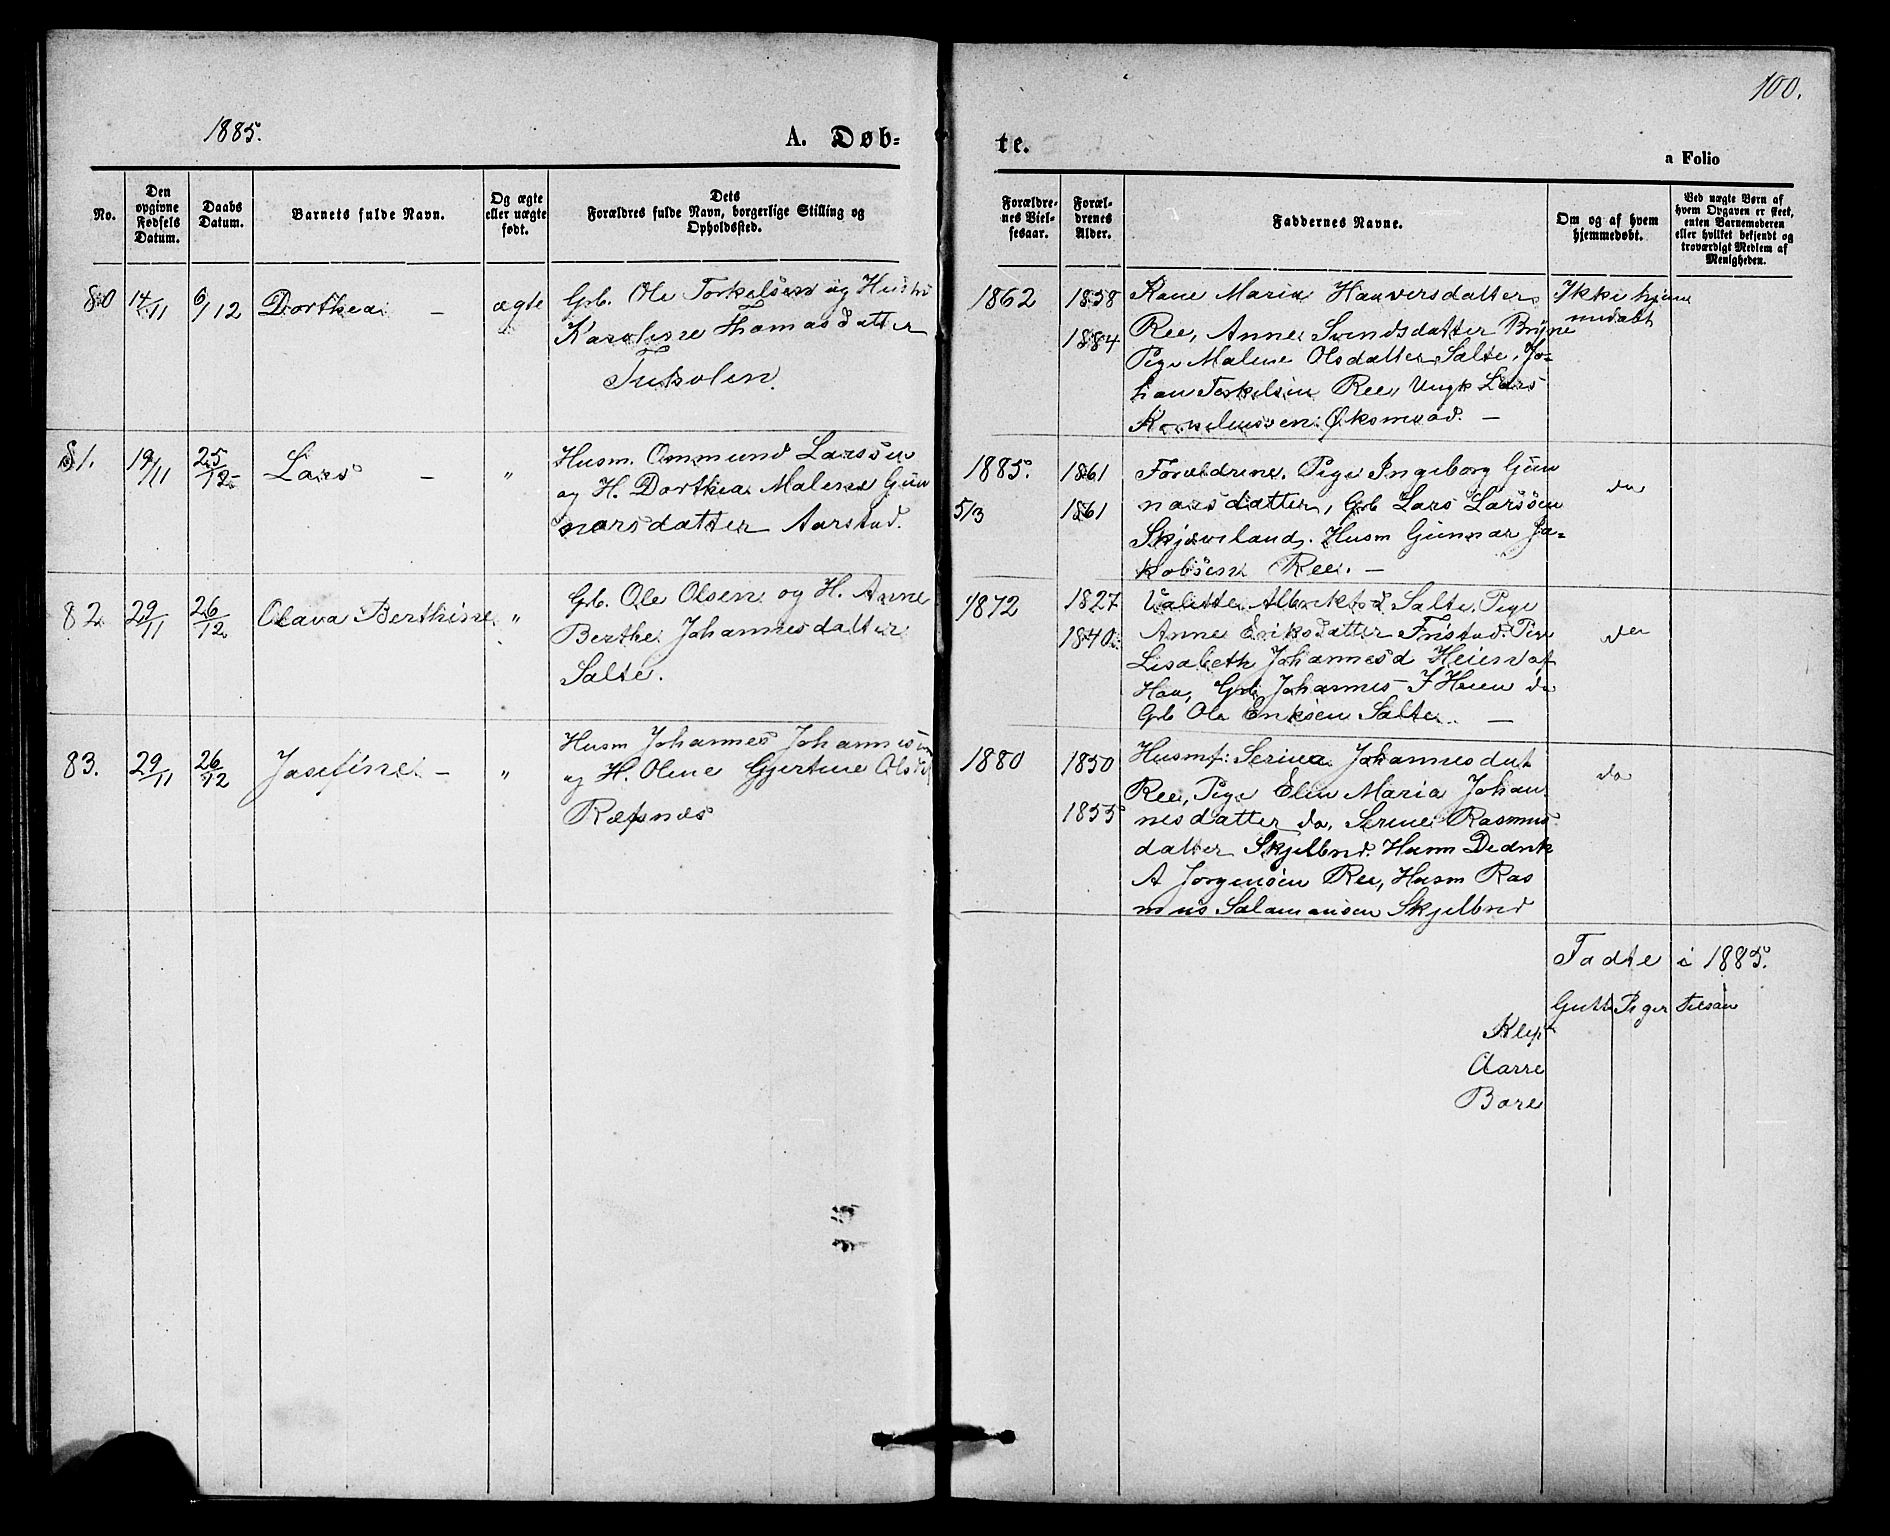 100.
1885.
A. Døb-
te.
a Folio
No.
Den opgivne Fødsels Datum.
Daabs Datum.
Barnets fulde Navn.
Og ægte eller uægte født.
Dets
Forældres fulde Navn, borgerlige Stilling og
Opholdssted.
Forældre-
nes Viel-
sesaar.
Foræl-
drenes
Alder.
Faddernes Navne.
Om og af hvem
hjemmedøbt.
Ved uægte Børn af
hvem Opgaven er skeet,
enten Barnemoderen
eller hvilket bekjendt og
troværdigt Medlem af
Menigheden.
80 14/11 6/12 Dorthea – ægte
Grb. Ole Torkelsen og Hustru
Karoline Thomasdatter
1862 1838
1884
Kone Maria Hanversdatter
Ree, Anne Svendsdatter Bryne
Pige Malene Olsdatter Salte, Jo-
han Torkelsen Ree, Ungk Lars
Korneliussen Øksnevad. –
Ikke hjem
medøbt
81. 19/11 25/12 Lars – "
Husm. Ommund Larssen
og H. Dorthea Malene Gun
narsdatter Aarstad.
1885.
5/3
1861
1861
Forældrene. Pige Ingeborg Gun
narsdatter, Grb Lars Larssen
Skjæveland. Husm Gunnar Ja-
kobsen Ree. –
do
82 29/11 26/12 Olava Berthine "
Grb. Ole Olsen og H. Anne
Berthe Johannesdatter
Salte.
1872 1827
1840
Albrektsd Salte, Pige
Anne Eriksdatter Fristad. Pige
Lisabeth Johannesd Heien af
Haa, Grb Johannes J Heien do
Grb Ole Eriksen Salte. –
do
83. 29/11 26/12 Josefine – "
Husm Johannes Johannesen
og H. Oline Gjertine Olsd
Ræfsnæs
1880 1850
1855
Husmf: Serina Johannesdat
Ree, Pige Elen Maria Johan-
nesdatter do, Serine Rasmus
datter Skjelbred. Husm Dedrik
A Jørgensen Ree, Husm Ras
mus Salamonsen Skjelbred
do
Fødte i 1885.
Gutt Piger Tilsam
Klep
Aarre
Bore